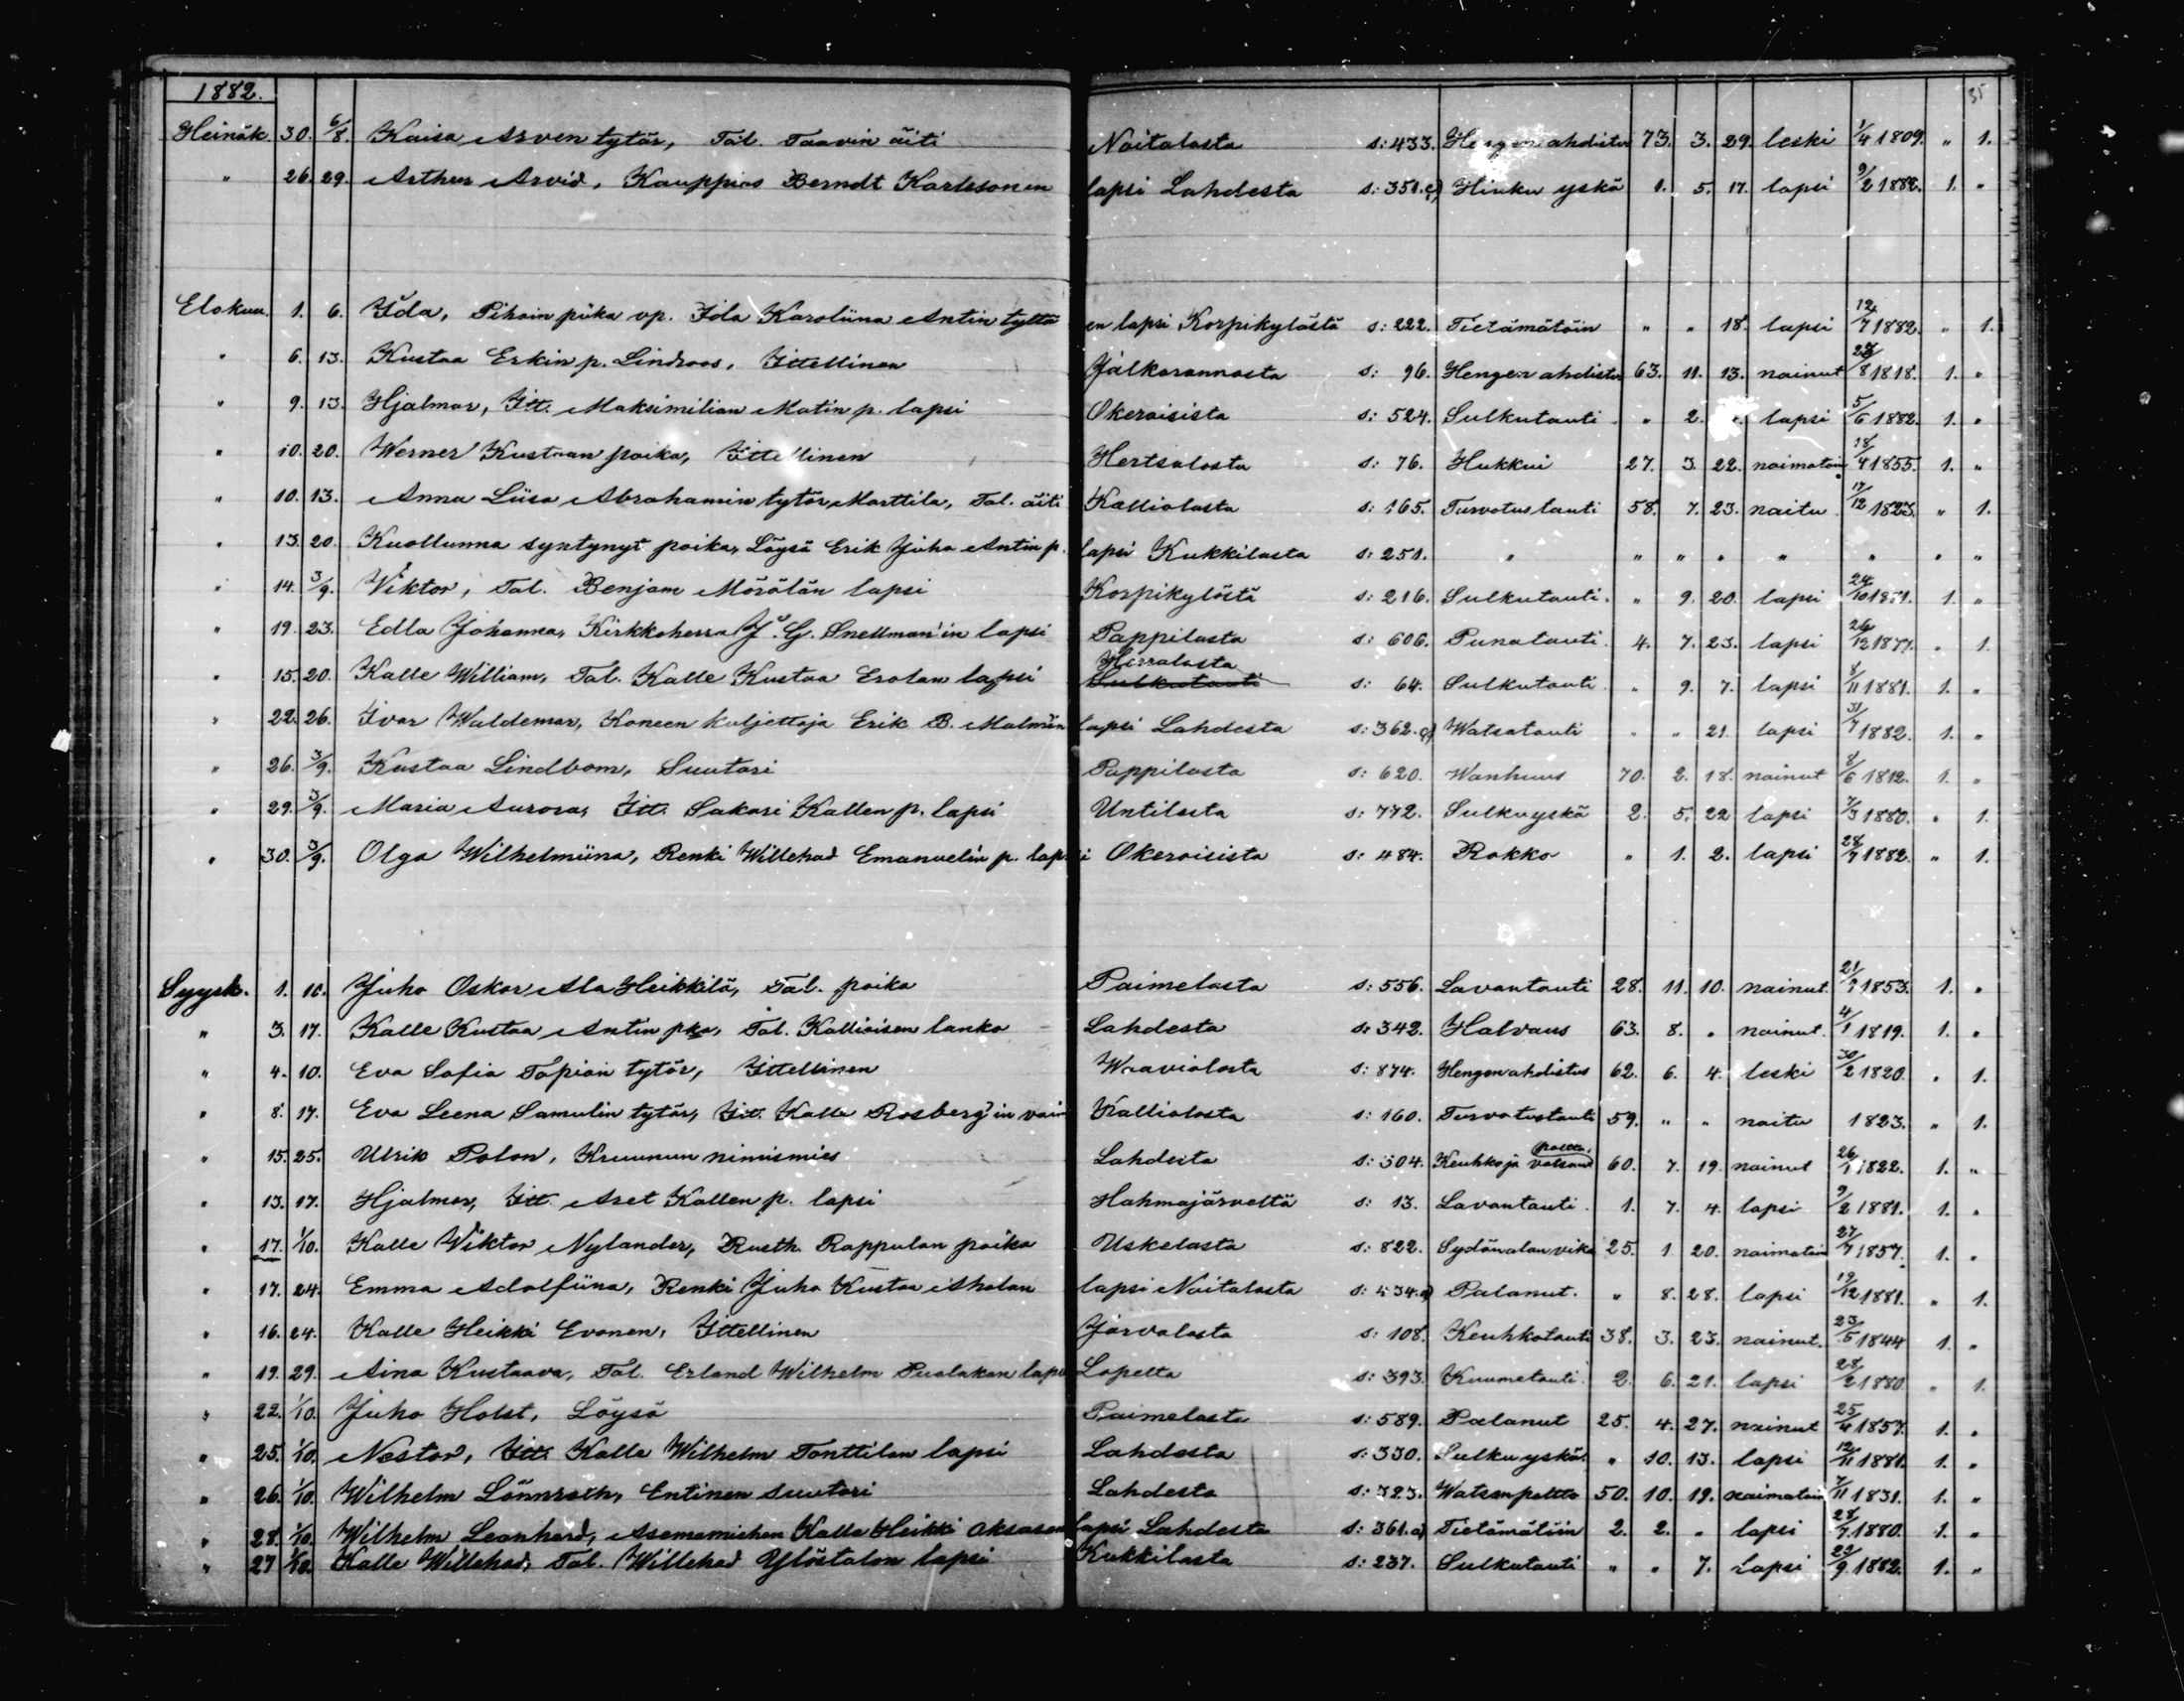 35
1882.
Heinäk. 30. 6/8. Kaisa Arven tytär, Tal. Taavin äiti Noitalasta s: 433. Hengen ahdistus 73. 3. 29. leski 1/4 1809. " 1.
" 26. 29. Arthur Arvid, Kauppias Berndt Karlssonin lapsi Lahdesta s: 351.c) Hinku yskä 1. 5. 17. lapsi 9/2 1882. 1. "
Elokuu. 1. 6. Ida, Pihain piika vp. Ida Karoliina Antin tyttären lapsi Korpikylästä s: 222. Tietämätöin " " 18. lapsi 12/7 1882. " 1.
" 6. 13. Kustaa Erkin p. Lindroos, Ittellinen Jalkarannasta s: 96. Hengen ahdistus 63. 11. 13. nainut 23/8 1818. 1. "
" 9. 13. Hjalmar, Itt. Maksimilian Matin p. lapsi Okeroisista s: 524. Sulkutauti " 2. lapsi 5/6 1882. 1. "
" 10. 20. Werner Kustaan poika, Ittellinen Hertsalasta s: 76. Hukkui 27. 3. 22. naimatoin 18/4 1855. 1. "
" 10. 13. Anna Liisa Abrahamin tytär Marttila, Tal. äiti Kalliolasta s: 165. Turvotustauti 58. 7. 23. naitu 17/12 1823. " 1.
" 13. 20. Kuollunna syntynyt poika, Löysä Erik Juho Antin p. lapsi Kukkilasta s: 251. " " " " " " " "
" 14. 3/9. Viktor, Tal. Benjam Mörölän lapsi Korpikylästä s: 216. Sulkutauti. " 9. 20. lapsi 24/10 1881. 1. "
" 19. 23. Edla Johanna, Kirkkoherra J. G. Snellman'in lapsi Pappilasta s: 606. Punatauti. 4. 7. 23. lapsi 26/12 1877. " 1.
" 15. 20. Kalle William, Tal. Kalle Kustaa Erolan lapsi Herralasta Sulkutauti s: 64. Sulkutauti. " 9. 7. lapsi 8/11 1881. 1. "
" 22. 26. Ivar Waldemar, Koneen kuljettaja Erik B. Malmin lapsi Lahdesta s: 362.c) Watsatauti " " 21. lapsi 31/7 1882. 1. "
" 26. 3/9. Kustaa Lindbom, Suutari Pappilasta s: 620. Wanhuus 70. 2. 18. nainut 8/6 1812. 1. "
" 29. 3/9. Maria Aurora, Itt. Sakari Kallen p. lapsi Untilasta s: 772. Sulkuyskä 2. 5. 22 lapsi 7/3 1880. " 1.
" 30. 3/9. Olga Wilhelmiina, Renki Willehad Emanuelin p. lapsi Okeroisista s: 484. Rokko " 1. 2. lapsi 28/7 1882. " 1.
Syysk. 1. 10. Juho Oskar Ala Heikkilä, Tal. poika Paimelasta s: 556. Lavantauti 28. 11. 10. nainut. 21/9 1853. 1. "
" 3. 17. Kalle Kustaa Antin pka, Tal. Kallioisen lanko Lahdesta s: 342. Halvaus 63. 8. " nainut. 4/1 1819. 1. "
" 4. 10. Eva Sofia Topian tytär, Ittellinen Waaviolasta s: 874. Hengenahdistus 62. 6. 4. leski 30/2 1820. " 1.
" 8. 17. Eva Leena Samulin tytär, Itt. Kalle Rosberg'in vaim Kalliolasta s: 160. Turvotustauti 59. " " naitu 1823. " 1.
" 15. 25. Ulrik Polon, Kruunun nimismies Lahdesta s: 304. Keuhko ja vatsan poltto. 60. 7. 19. nainut 26/1 1822. 1. "
" 13. 17. Hjalmar, Itt. Aset Kallen p. lapsi Hahmajärveltä s: 13. Lavantauti. 1. 7. 4. lapsi 9/2 1881. 1. "
" 17. 1/10. Kalle Wiktor Nylander, Rusth. Rappulan poika Uskelasta s: 822. Sydänalan vika 25. 1. 20. naimatoin 27/7 1857. 1. "
" 17. 24. Emma Adolfiina, Renki Juho Kustaa Aholan lapsi Noitalasta s: 434.a) Palanut. " 8. 28. lapsi 19/12 1881. " 1.
" 16. 24. Kalle Heikki Evonen, Ittellinen Järvalasta s: 108. Keuhkotauti 38. 3. 23. nainut. 23/5 1844 1. "
" 19. 29. Aina Kustaava, Tal. Erland Wilhelm Pualakan lapsi Lopelta s: 393. Kuumetauti. 2. 6. 21. lapsi 28/2 1880. " 1.
" 22. 1/10. Juho Holst, Löysä Paimelasta s: 589. Palanut 25. 4. 27. nainut 25/4 1857. 1. "
" 25. 1/10. Nestor, Itt. Kalle Wilhelm Tonttilan lapsi Lahdesta s: 330. Sulkuyskä. " 10. 13. lapsi 12/11 1881. 1. "
" 26. 1/10. Wilhelm Lönnroth, Entinen suutari Lahdesta s: 323. Watsanpoltto 50. 10. 19. naimatoin 7/11 1831. 1. "
" 28. 1/10. Wilhelm Leonhard, Asemamiehen Kalle Heikki Aksasen lapsi Lahdesta s: 361.a) Tietämätöin 2. 2. " lapsi 28/7 1880. 1. "
" 27 1/10. Kalle Willehad, Tal. Willehad Ylöstalon lapsi Kukkilasta s: 237. Sulkutauti " " 7. Lapsi 22/9 1882. 1. "